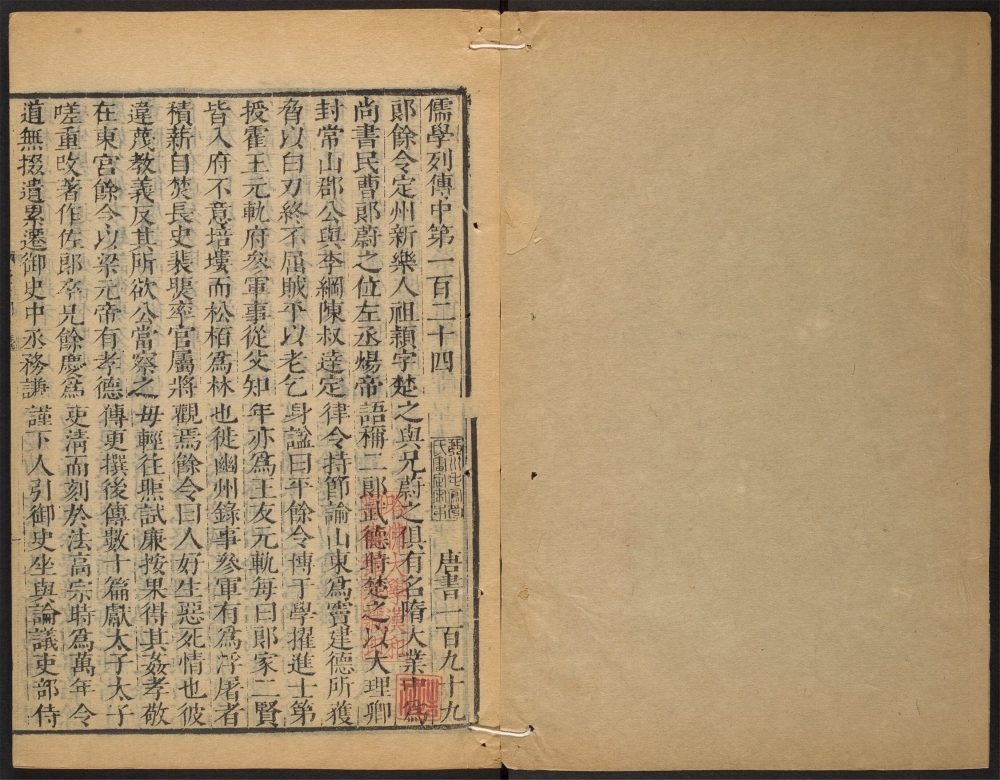 儒學列傳中第一百二十四 唐書一百九十九
郎餘令定州新樂人祖穎字楚之與兄蔚之俱有名隋大業中爲
尚書民曹郎蔚之位左丞煬帝語稱二郎武德時楚之以大理卿
封常山郡公與李綱陳叔達定律令持節諭山東爲竇建德所獲
脅以白刃終不屈賊平以老乞身謚曰平餘令博于學擢進士第
授霍王元軌府參軍事從父知年亦爲王友元軌每曰郎家二賢
皆入府不意培塿而松栢爲林也徙幽州錄事參軍有爲浮屠者
積薪自焚長史裴煚率官屬將觀焉餘令曰人好生惡死情也彼
違蔑教義反其所欲公當察之毋輕往煚試廉按果得其姦孝敬
在東宮餘令以梁元帝有孝德傳更撰後傳數十篇獻太子太子
嗟重改著作佐郎卒兄餘慶爲吏清而刻於法高宗時爲萬年令
道無掇遺累遷御史中丞務謙謹下人引御史坐與論議吏部侍